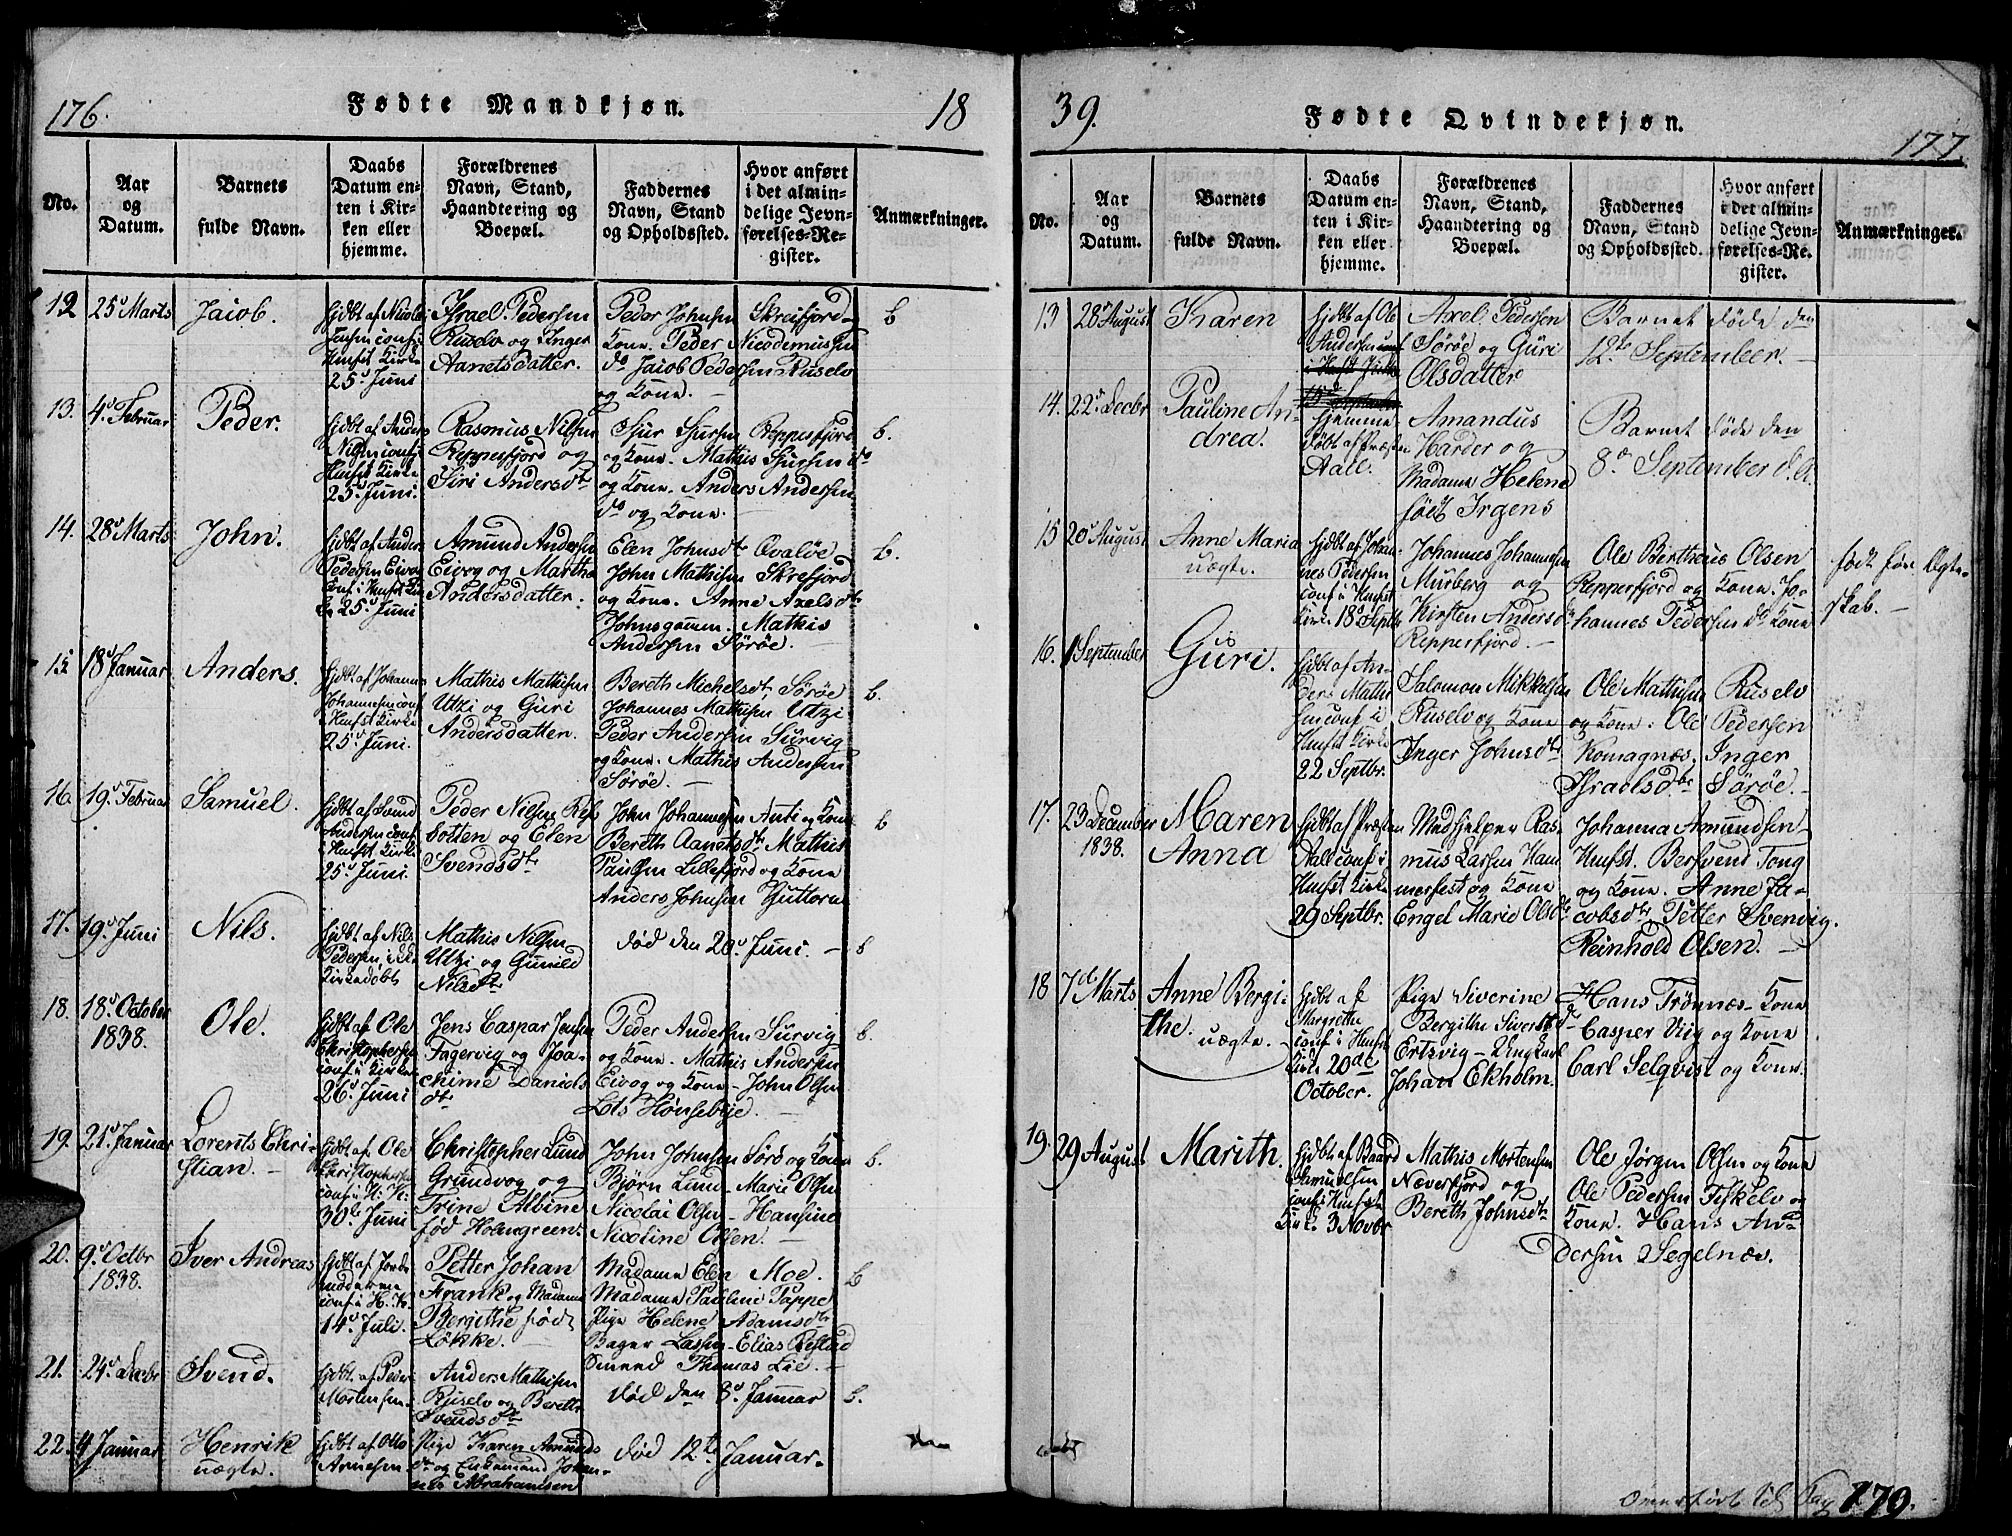 176.
Fødte Mandkjøn.
18
No.
Aar
og
Datum.
Barnets
fulde Navn.
Daabs
Datum en-
ten i Kir-
ken eller
hjemme.
Forældrenes
Navn, Stand,
Haandtering og
Boepæl.
Faddernes
Navn, Stand
og Opholdssted.
Hvor anført
i det almin-
delige Jevn-
førelses-Re-
gister.
Anmærkninger.
12
25d Marts
Jaiob.
hjdbt af Nicolai
Jensen conf i
Hmfst Kirke
25d Juni
Israel Pedersen
Ruselv og Inger
Aanetsdatter.
Peder Johnsen Skreifjord
Kone. Peder Nicodemussen
do Jaiob Pedersen Ruselv
og Kone. —
b
13.
4d Februar
Peder.
hjdbt af Anders
Nilsen conf i
Hmfst Kirke
25d Juni.
Rasmus Nilsen
Repperfjord og
Siri Andersdtr
Sjur Sjursen Repperfjord
og Kone. Mathis Sjursen do
og Kone. Anders Andersen
do og Kone.
b.
14.
28d Marts
John.
hjdbt af Anders
Pedersen Eivog
conf. i Hmfst Kir
ke 25d Juni
Amund Andersen
Eivog og Martha
Andersdatter.
Elen Johnsdtr Qvaløe
John Mathisen Skrefjord
og Kone. Anne Axelsdtr
Johnsgammen. Mathis
Andersen Sørøe.
b.
15
18d Januar
Anders.
hjdbt af Johannes
Johannesen conf
i Hmfst Kirke
25d Juni.
Mathis Mathisen
Utzi og Guri
Andersdatter.
Bereth Michelsdtr Sørøe
Johannes Mathisen Utzi
Peder Andersen Survig
og Kone. Mathis Andersen
Sørøe. —
b.
16.
19d Februar
Samuel.
hjdbt af
Andersen conf
i Hmfst Kirke
25d Juni.
Peder Nilsen Ref
botten og Elen
Svendsdtr
John Johannesen Anti og Kone
Bereth Aanetsdtr Mathis
Paulsen Lillefjord og Kone
Anders Johnsen
b
17.
19d Juni
Nils.
hjdbt af Nils
Pedersen, ikke
kirkedøbt
Mathis Nilsen
Utzi og Gunild
Nilsdtr
død den 20d Juni. —
b
18.
18d October
1838.
Ole.
hjdbt af Ole
Christophersen
conf i Kirke
26d Juni
Jens Caspar Jensen
Fagervig og Joa-
chime Daniels
dtr
Peder Andersen Survig
og Kone. Mathis Andersen
Eivog og Kone – John Olsen
Lots Hønsebye.
b.
19.
21d Januar
Lorents Chri-
stian. —
hjdbt af Ole
Christophersen
conf i H. K.
30te Juni
Christopher Lund
Grundvog og
Trine Albine
fød Holmgreen.
John Johnsen Sørø og Kone
Bjørn Lund – Marie Olsen
Nicolai Olsen – Hansine
Nicoline Olsen. —
b.
20.
9d Octbr
1838.
Iver Andreas
hjdbt af Jorde
moderen
conf i H. K.
14d Juli.
Petter Johan
Frank og Madame
Bergithe født
Løkke.
Madame Elen Moe.
Madame Pauline Pappe
Pige Helene Adamsdtr
Bager Lassen – Elias Restad
Smeed Thomas Lie. —
b
21.
24d Decbr
Svend.
hjdbt af Peder
Mortensen.
Anders Mathisen
Ruselv og Bereth
Svendsdtr
død den 8d Januar
b.
22.
4 Januar
Henrik
uægte.
hjdbt af Otto
Arnesen
Pige Karen Amunds
dtr og Enkemand Johan-
nes Abrahamsen
død 12te Januar.
39.
Fødte Qvindekjøn.
177.
No.
Aar
og
Datum.
Barnets
fulde Navn.
Daabs
Datum en-
ten i Kir-
ken eller
hjemme.
Forældrenes
Navn, Stand,
Haandtering og
Boepæl.
Faddernes
Navn, Stand
og Opholdssted.
Hvor anført
i det almin-
delige Jevn-
førelses-Re-
gister.
Anmærkninger.
13
28 August
Karen
hjdbt af Ole
Andersen conf
i Hmfst Kirke
15d September
Axel Pedersen
Sørøe og Guri
Olsdatter
Barnet døde den
12te September. —
14.
22d Decbr
Pauline An-
drea.
hjemme
døbt af Præsten
Aall.
Amandus
Harder og
Madame Helene
født Irgens
Barnet døde den
8de September d. A.
15
20d August
Anne Maria
uægte.
hjdbt af Johan-
nes Pedersen
conf i Hmfst
Kirke 18d Septbr
Johannes Johannesen
Murberg og
Kirsten Andersdtr
Repperfjord. —
Ole Bertheus Olsen
Repperfjord og Kone. Jo-
hannes Pedersen do Kone
født før Ægte-
skab. —
16.
1 September
Guri.
hjdbt af An-
ders Mathi
sen conf i
Hmfst Kirke
22 Septbr.
Salomon Mikkelsen
Ruselv og Kone
Inger Johnsdtr
Ole Mathisen Ruselv
og Kone. Ole Pedersen
Komagnæs. Inger
Israelsdtr Sørøe. —
17.
23 December
1838.
Maren
Anna
hjdbt af Præsten
Aall conf i
Hmfst Kirke
29 Septbr.
Medhjelper Ras-
mus Larsen Ham
merfest og Kone
Engel Marie Olsdtr
Johanna Amundsen
Hmfst. Bersvend Tong
og Kone. Anne Ja-
cobsdtr Petter Svenvig.
Reinhold Olsen. —
18
7de Marts
Anne Bergi-
the. uægte.
hjdbt af
Margrethe
conf i Hmfst
Kirke 20de
October.
Pige Siverine
Bergithe Sivertsd-
Ertsvig – Ungkarl
Johan Ekholm.
Hans Trønnæs Kone
Casper Viig og Kone
Carl Selqvist og Kone.
19.
29 August
Marith.
hjdbt af Baard
Samuelsen
conf i Hmfst
Kirke 3 Novbr
Mathis Mortensen
Næverfjord og
Bereth Johnsdtr
Ole Jørgen Olsen og Kone
Ole Pedersen Fiskelv og
Kone. Hans An-
dersen Segelnæs.
Overført til Pag 179.